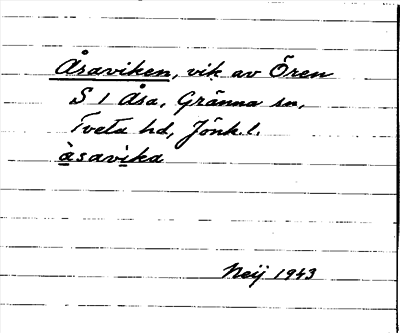 Åsaviken, vik av Ören
S 1 Åsa, Gränna sn,
Tveta hd, Jönk. l.
åsavika
Neij 1943